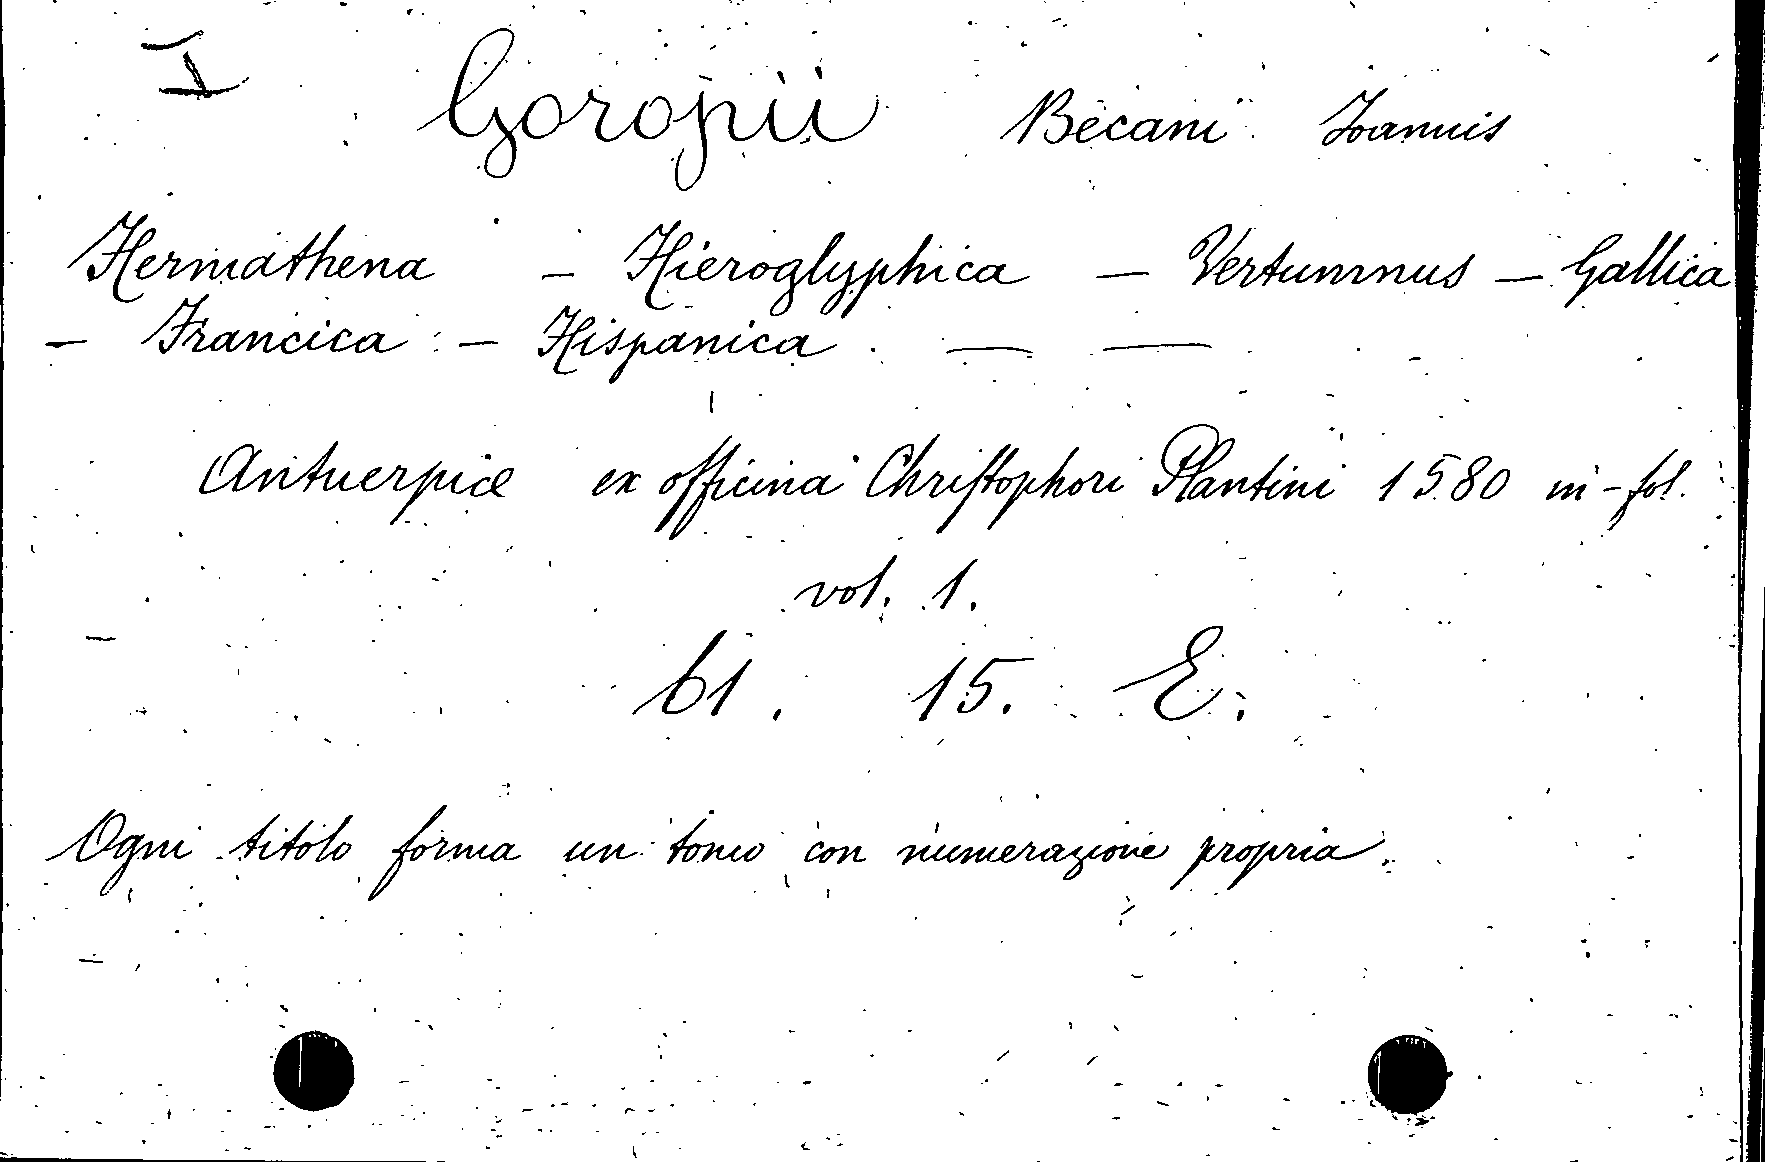 I Goropii Becani Ioannis
Hermathena – Hieroglyphica – Vertumnus – Gallica
– Francica – Hispanica. — —
Antuerpiæ ex officina Christophori Plantini 1580 in-fol.
vol. 1.
61. 15. E.
Ogni titolo forma un tomo con numerazione propria.